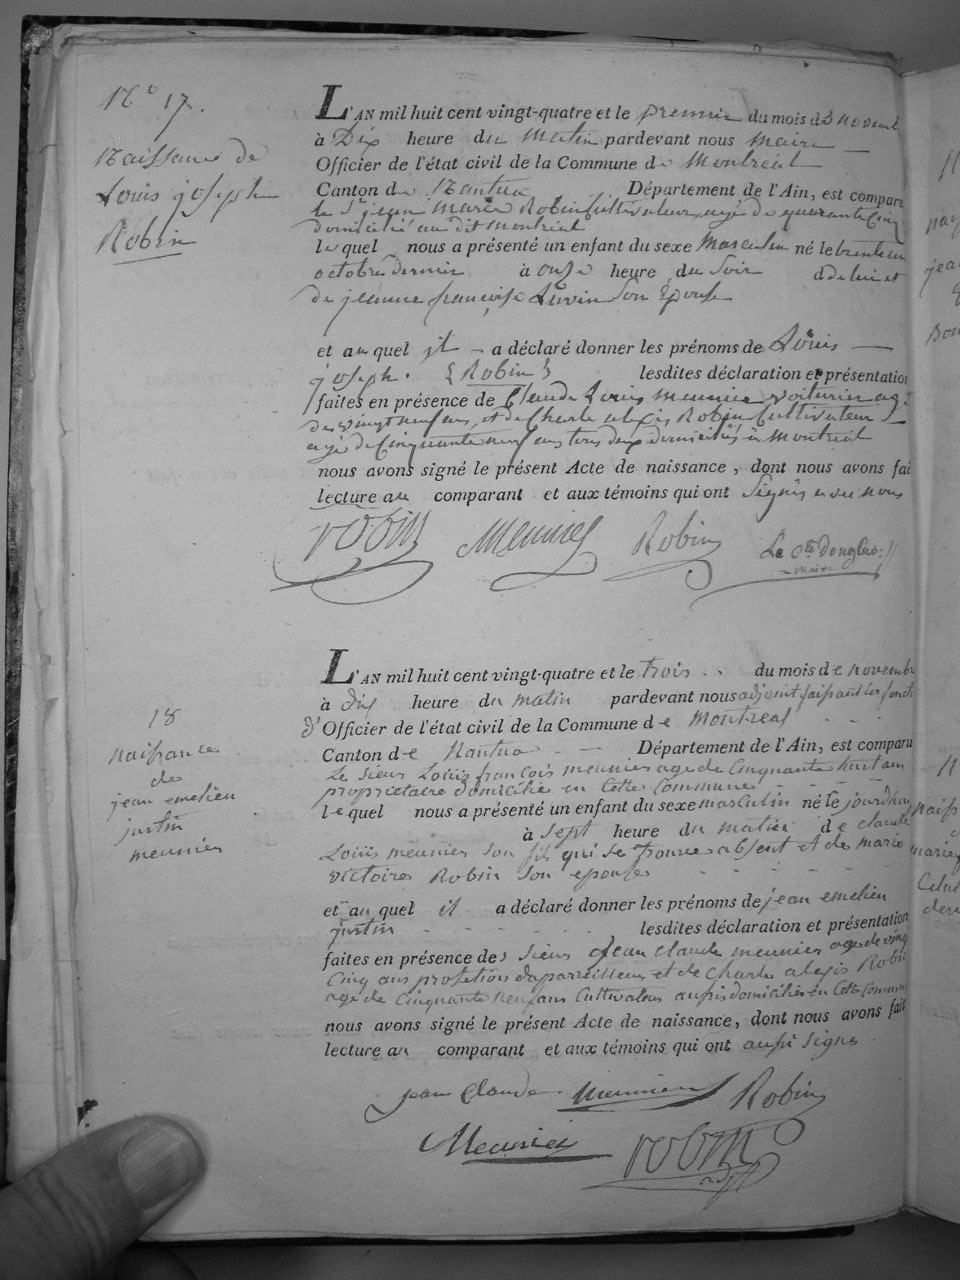 N° 17.
Naissance de
Louis joseph
Robin
L'AN mil huit cent vingt-quatre et le premier du mois d
à Dix heure du matin pardevant nous maire
Officier de l'état civil de la Commune de Montréal
Canton de Nantua Département de l'Ain, est comparu
le Sr jean marie Robin Cultivateur agé de quarante cinq
domicilié au dit Montréal
lequel nous a présenté un enfant du sexe Masculin né le trente un
octobre dernier à onse heure du Soir d de lui et
de jeanne françoise Son Epouse
et auquel il a déclaré donner les prénoms de Louis
joseph. Robin lesdites déclaration et présentation
faites en présence de Claude Louis meunier voiturier agé
de vingt neuf ans, et de Charle alexis Robin Cultivateur
agé de Cinquante neuf ans tous deux domiciliés à Montréal
nous avons signé le présent Acte de naissance, dont nous avons fai
lecture au comparant et aux témoins qui ont Signés avec nous
robin Meunier Robin Le Cte Douglas
maire
18
naissance
de
jean emelien
justin
meunier
L'AN mil huit cent vingt-quatre et le trois du mois de novembre
à dix heure du matin pardevant nous adjoint faisant les fonct
d'Officier de l'état civil de la Commune de Montreal
Canton de Nantua Département de l'Ain, est comparu
Le sieur Louis françois meunier age de Cinquante huit ans
proprietaire domicilié en Cette Commune
lequel nous a présenté un enfant du sexe masculin né le jourdhuy
à sept heure du matin de claude
Louis meunier son fils qui se trouve absent et de marie
victoire Robin son epouse
et auquel il a déclaré donner les prénoms de jean emelien
justin lesdites déclaration et présentation
faites en présence des sieur jean claude meunier age de vingt
Cinq ans profetion dapareilleur et de Charle alexis Robin
age de Cinquante neuf ans Cultivateur aussi domiciliés en Cette Commune
nous avons signé le présent Acte de naissance, dont nous avons fait
lecture au comparant et aux témoins qui ont aussi signe
jean Claude meunier Robin
Meunier robin
adjt